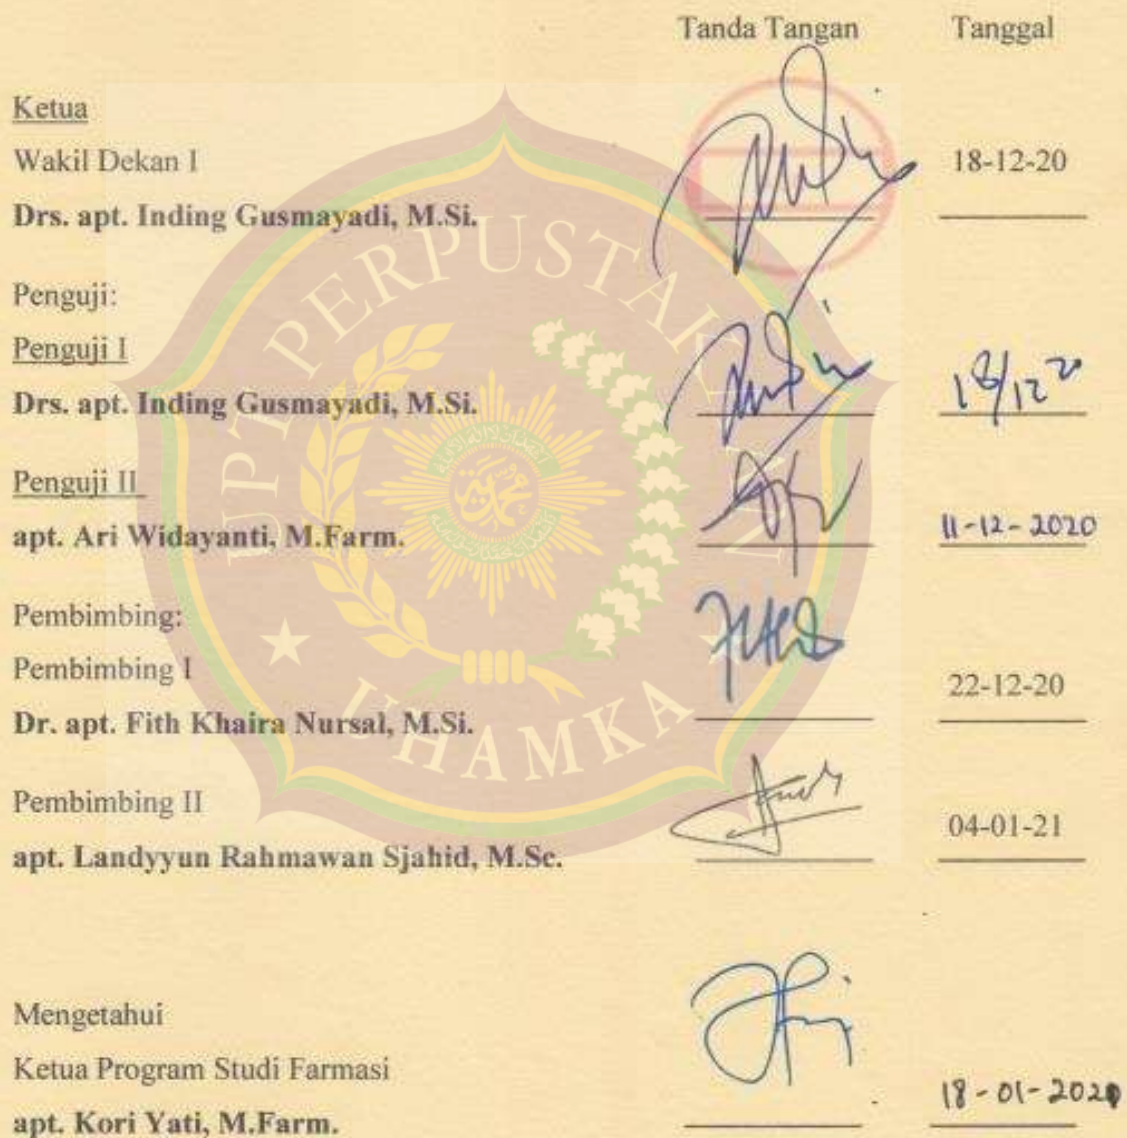 Tanda Tangan Tanggal
Ketua
Wakil Dekan I 18-12-20
Drs. apt. Inding Gusmayadi, M.Si.
Penguji:
Penguji I
Drs. apt. Inding Gusmayadi, M.Si. 18/12 20
Penguji II
apt. Ari Widayanti, M.Farm. 11-12-2020
Pembimbing:
Pembimbing I 22-12-20
Dr. apt. Fith Khaira Nursal, M.Si.
Pembimbing II 04-01-21
apt. Landyyun Rahmawan Sjahid, M.Sc.
Mengetahui
Ketua Program Studi Farmasi
apt. Kori Yati, M.Farm. 18-01-2021
UPT PERPUSTAKAAN
UHAMKA